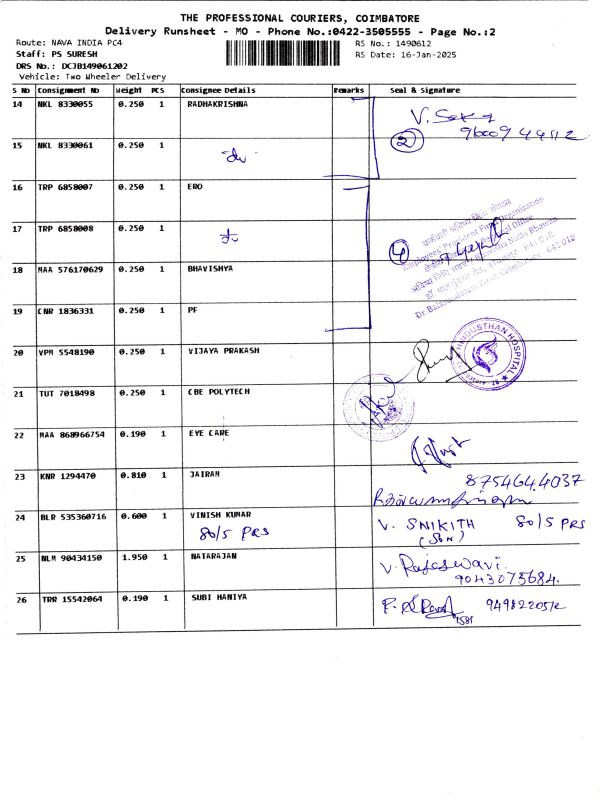 THE PROFESSIONAL COURIERS, COIMBATORE
Delivery Runsheet - MO - Phone No.:0422-3505555 - Page No.:2
Route: NAVA INDIA PC4 RS No.: 1490612
Staff: PS SURESH RS Date: 16-Jan-2025
DRS No.: DCJB149061202
Vehicle: Two Wheeler Delivery
S No Consignment No Weight PCS Consignee Details Remarks Seal & Signature
14 NKL 8330055 0.250 1 RADHAKRISHNA
2
15 NKL 8330061 0.250 1
16 TRP 6858007 0.250 1 ERO
17 TRP 6858008 0.250 1
4
18 MAA 576170629 0.250 1 BHAVISHYA
19 CNR 1836331 0.250 1 PF
20 VPM 5548190 0.250 1 VIJAYA PRAKASH
HINDUSTHAN HOSPITAL
21 TUT 7018498 0.250 1 CBE POLYTECH
22 MAA 868966754 0.190 1 EYE CARE
23 KNR 1294470 0.810 1 JAIRAM 8754644037
24 BLR 535360716 0.600 1 VINISH KUMAR V. SNIKITH 80/5 PRS
80/5 PRS (SON)
25 NLM 90434150 1.950 1 NATARAJAN V. Rajeswari.
9043073684.
26 TRR 15542064 0.190 1 SUBI HANIYA